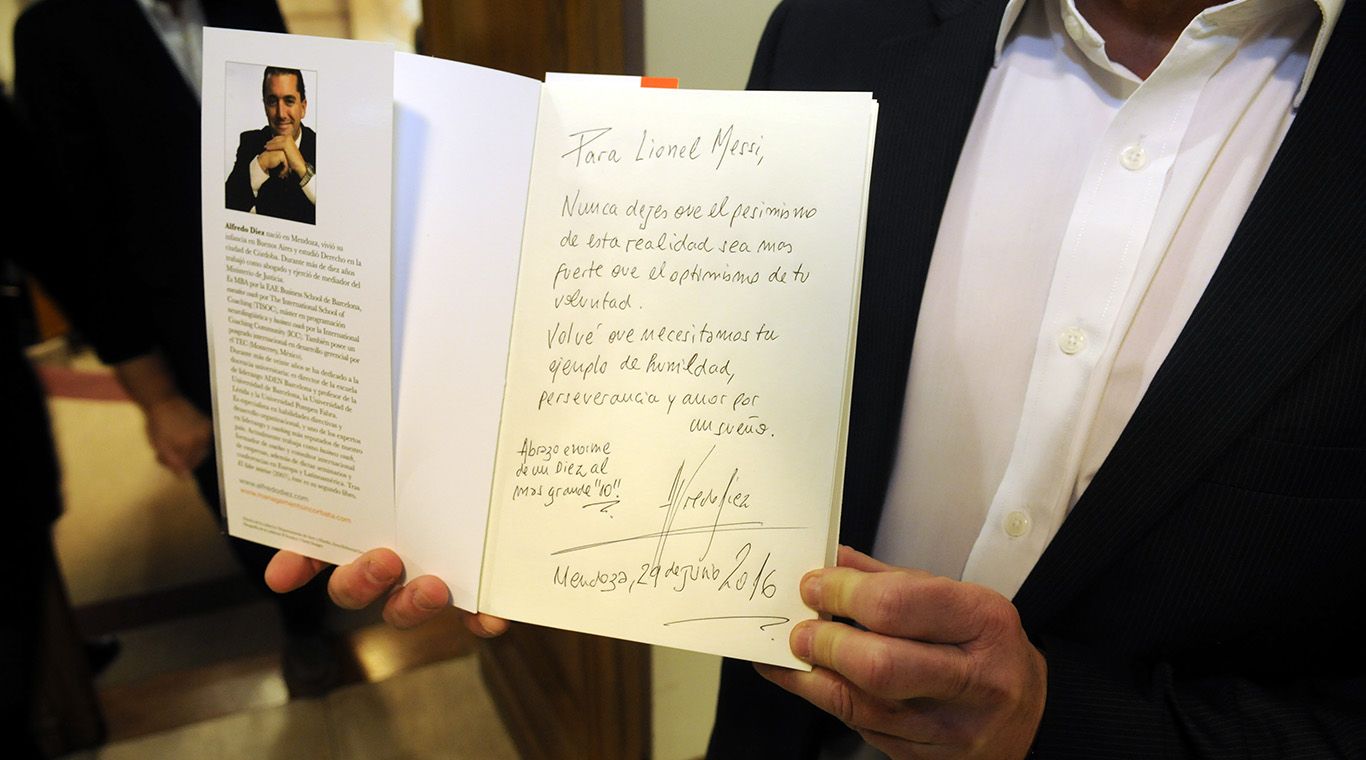 Alfredo Diez nació en Mendoza, vivió su
infancia en Buenos Aires y estudió Derecho en la
ciudad de Córdoba. Durante más de diez años
trabajó como abogado y ejerció de mediador del
Ministerio de Justicia.
Es MBA por la EAE Business School de Barcelona,
executive coach por The International School of
Coaching (TISOC), máster en programación
neurolingüística y business coach por la International
Coaching Community (ICC). También posee un
posgrado internacional en desarrollo gerencial por
el TEC (Monterrey, México).
Durante más de veinte años se ha dedicado a la
docencia universitaria: es director de la escuela
de liderazgo ADEN Barcelona y profesor de la
Universidad de Barcelona, la Universidad de
Lérida y la Universidad Pompeu Fabra.
Es especialista en habilidades directivas y
desarrollo organizacional, y uno de los expertos
en liderazgo y coaching más reputados de nuestro
país. Actualmente trabaja como business coach,
formador de coaches y consultor internacional
de empresas, además de dictar seminarios y
conferencias en Europa y Latinoamérica. Tras
El líder interior (2007), éste es su segundo libro.
www.alfredodiez.com
www.managementsincorbata.com
Para Lionel Messi,
Nunca dejes que el pesimismo
de esta realidad sea mas
fuerte que el optimismo de tu
voluntad.
Volvé que necesitamos tu
ejemplo de humildad,
perseverancia y amor por
un sueño.
Abrazo enorme
de un Diez al
mas grande "10".
Alfredo Diez
Mendoza, 29 de junio 2016